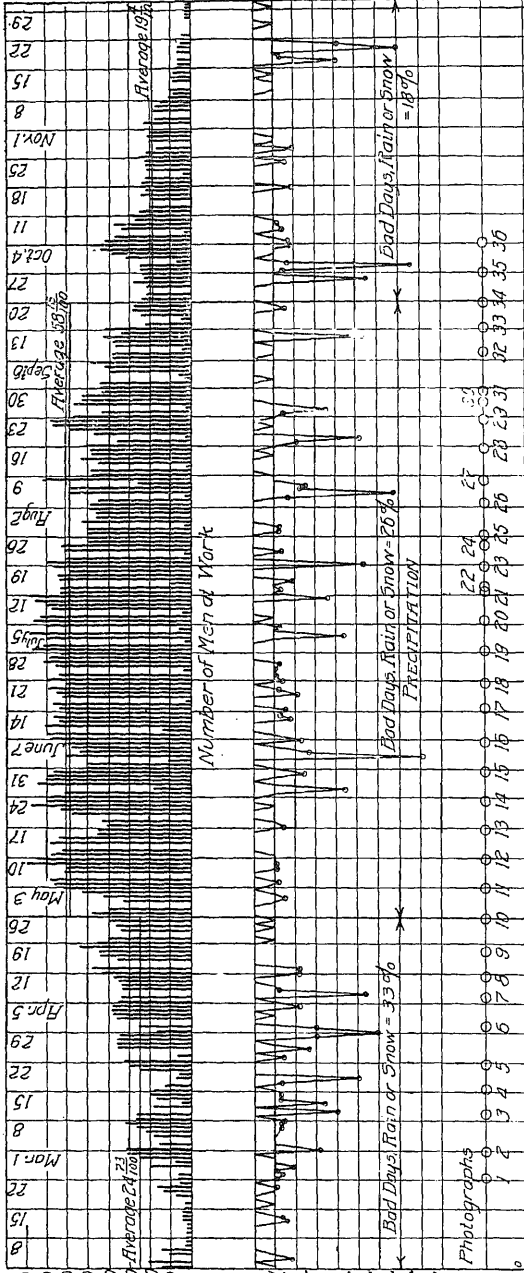 8 15 22 Mar. 1 8 15 22 29 Apr. 5 12 19 26 May 3 10 17 24 31 June 7 14 21 28 July 5 12 19 26 Aug 2 9 16 23 30 Sept 6 13 20 27 Oct. 4 11 18 25 Nov. 1 8 15 22 29
Average 24 23/100
Average 58 15/100
Average 19
Number of Men at Work
Bad Days, Rain or Snow = 33%
Bad Days, Rain or Snow = 26%
Bad Days, Rain or Snow
= 18%
PRECIPITATION
Photographs
22 24 27
1 2 3 4 5 6 7 8 9 10 11 12 13 14 15 16 17 18 19 20 21 23 25 26 28 29 31 32 33 34 35 36